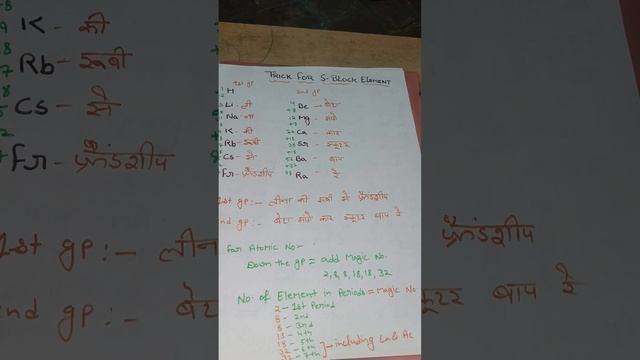 TRICK FOR S-BLOCK ELEMENT
1st gp
2nd gp
H
Li - ली
Na - ना
K - की
Rb - रूबी
Cs - से
Fr - फ्रैंडशीप
4 Be - बेटा
12 Mg - मांगे
20 Ca - कार
38 Sr - स्कूटर
56 Ba - बाप
88 Ra - रे
1st gp :- लीना की रूबी से फ्रैंडशीप
2nd gp :- बेटा मांगे कार स्कूटर बाप रे
For Atomic No:-
Down the gp = add Magic No.
2,8,8,18,18,32
No. of Element in Periods = Magic No
2 - 1st Period
8 - 2nd
8 - 3rd
18 - 4th
18 - 5th
32 - 6th
32 - 7th
} - including La & Ac